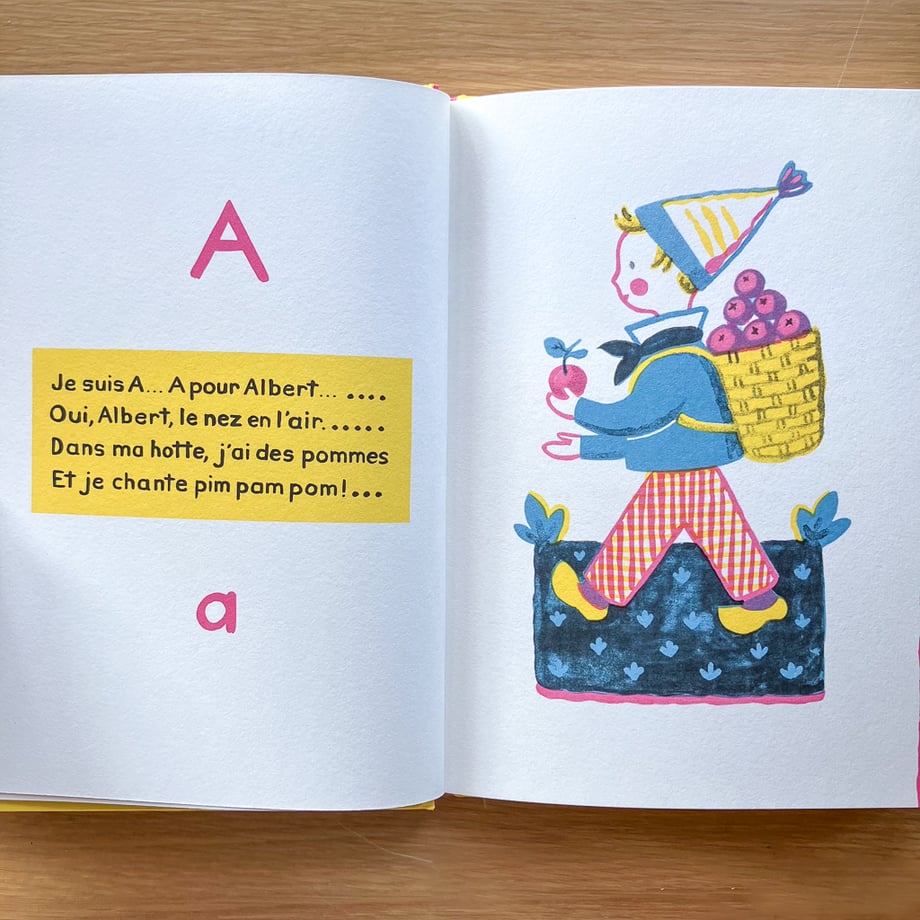 A
Je suis A... A pour Albert... ....
Oui, Albert, le nez en l'air. .....
Dans ma hotte, j'ai des pommes
Et je chante pim pam pom!...
a